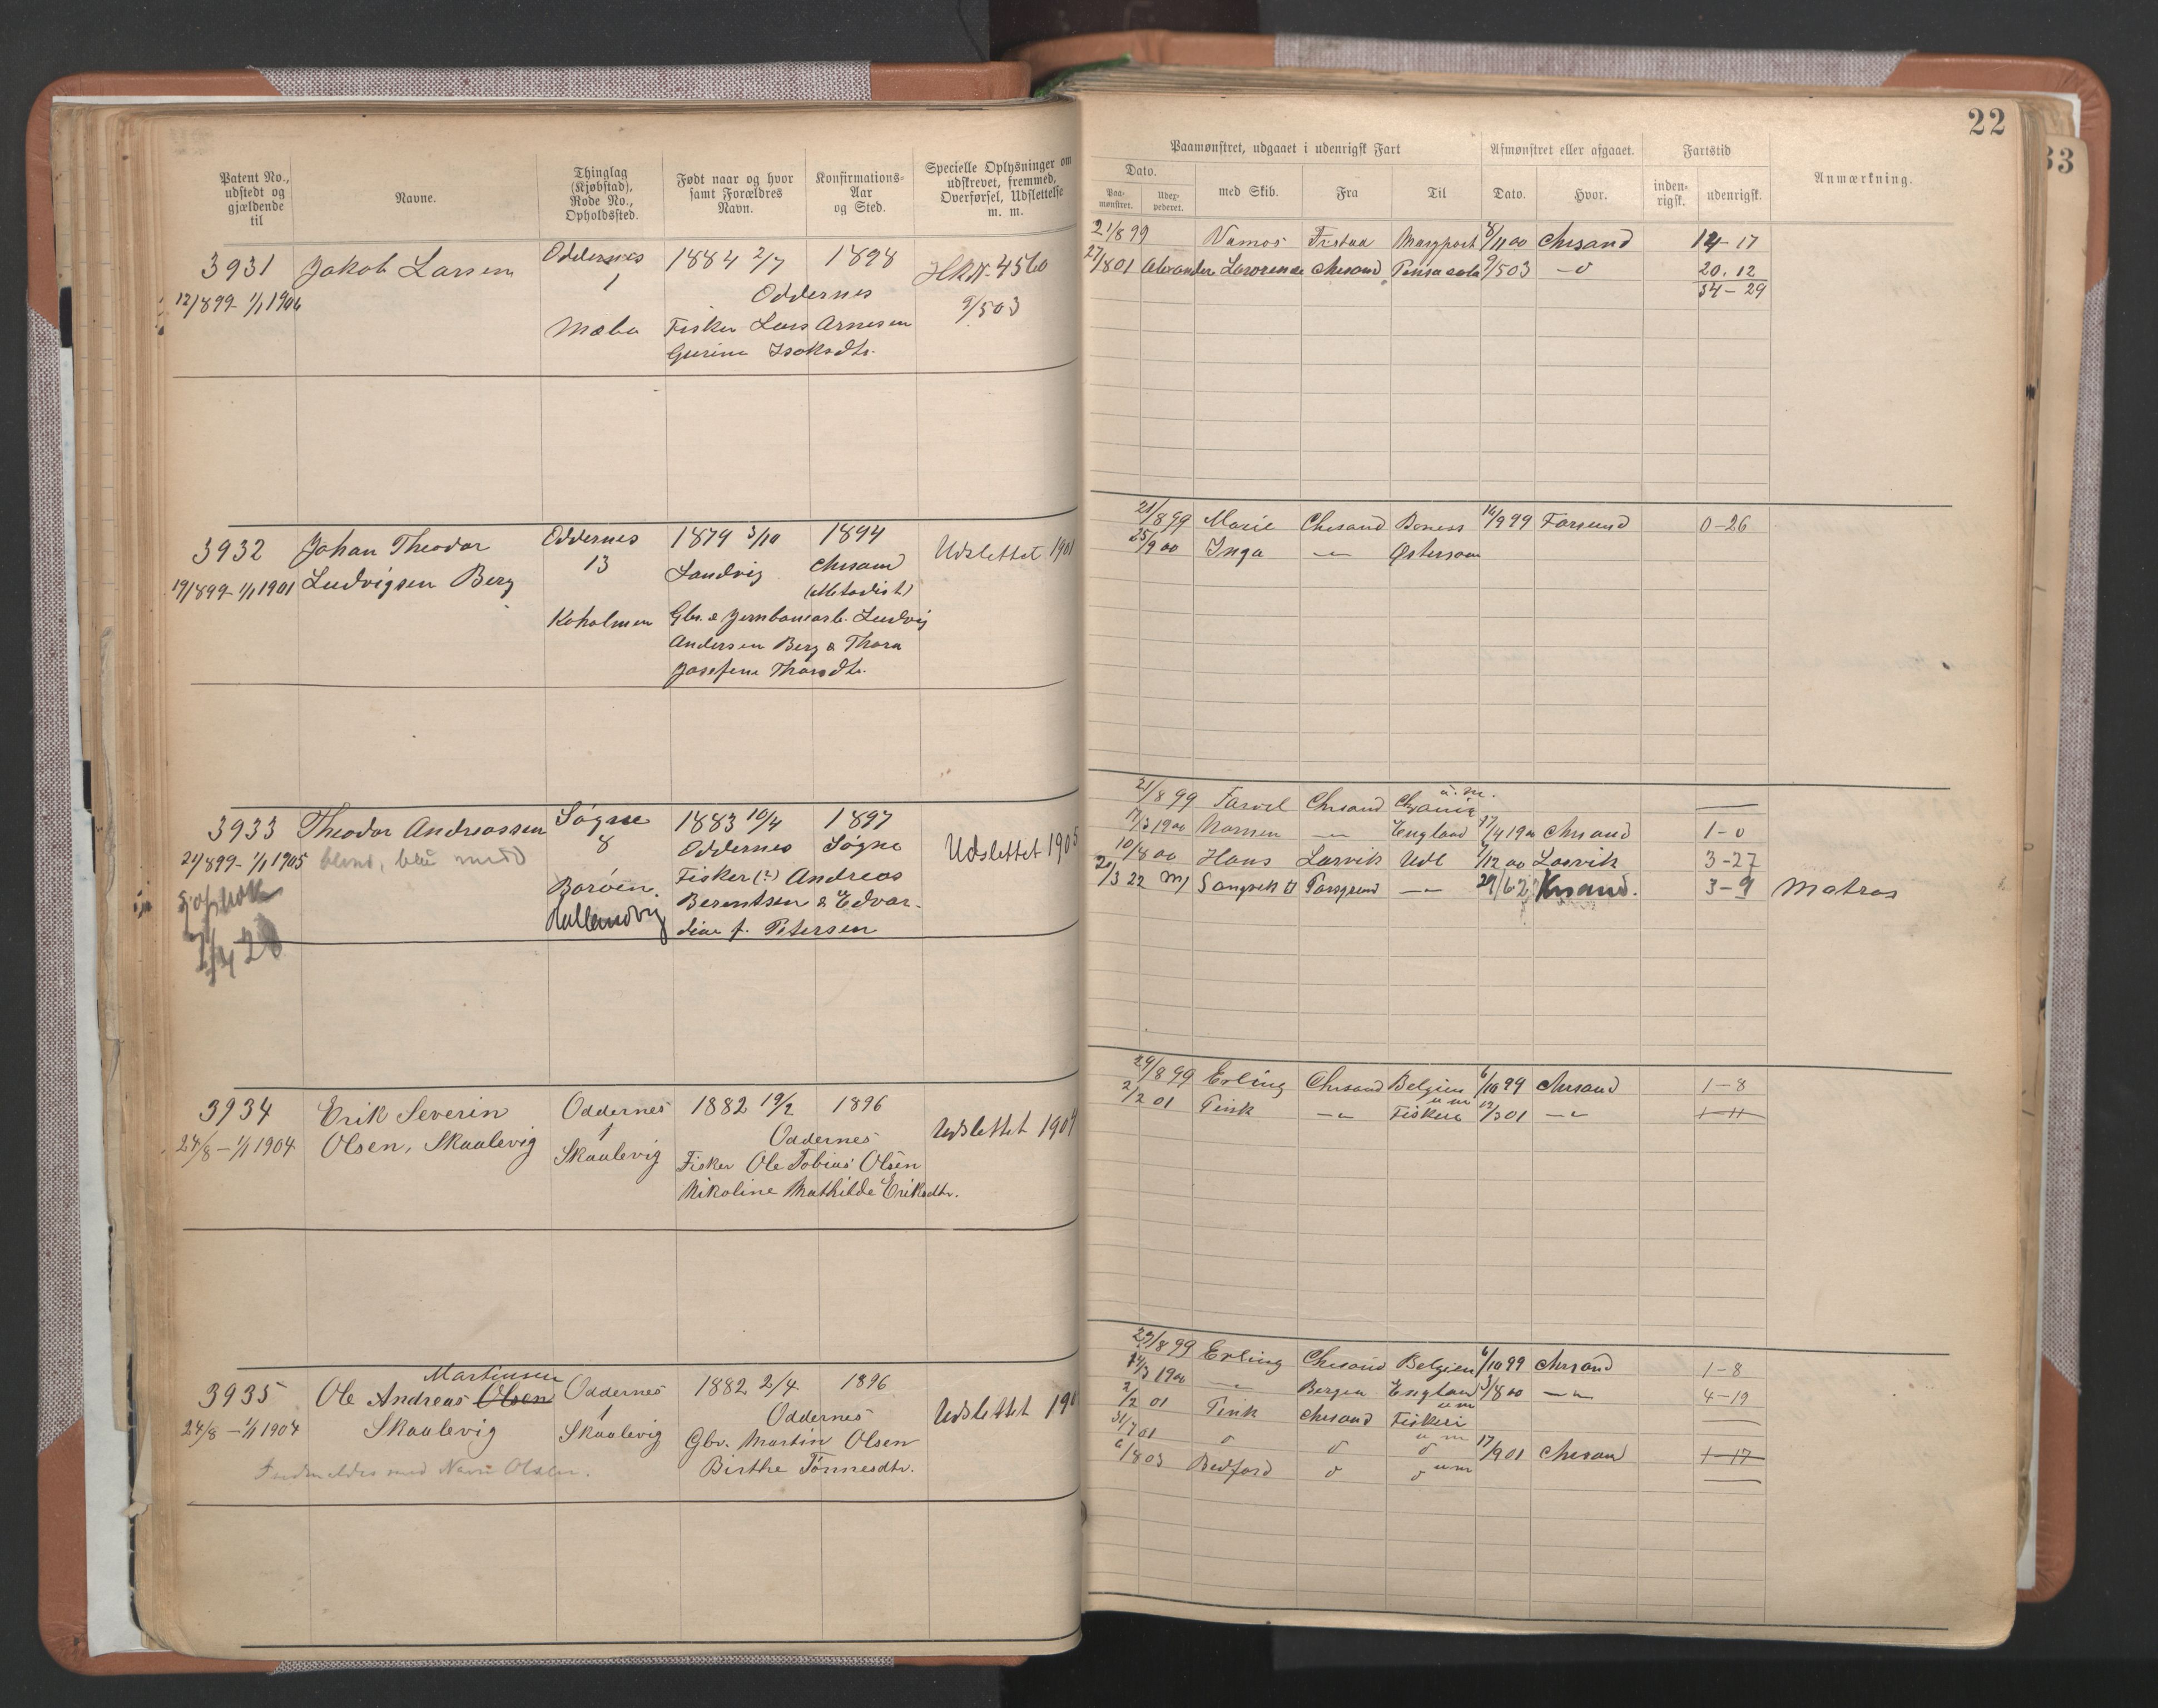 22
Patent No., udstedt og gjældende til
Navne.
Thinglag (Kjøbstad), Rode No., Opholdssted.
Født naar og hvor samt Forældres Navn.
Konfirmations-Aar og Sted.
Specielle Oplysninger om udskrevet, fremmed, Overførsel, Udslettelse m. m.
Paamønstret, udgaaet i udenrigsk Fart
Dato.
Paa-mønstret.
Udex-pederet.
med Skib.
Fra
Til
Afmønstret eller afgaaet.
Dato.
Hvor.
Fartstid
inden-rigsk.
udenrigsk.
Anmærkning.
3931 Jakob Larsen Oddernes 1884 2/7 1898 HRN. 4560
12/8 99 - 1/1 1906 1 Oddernes 9/5 03
Mæbø Fisker Lars Arnesen
Gurine Isaksdtr.
21/8 99 Vamos Fristad Maryport 8/11 00 Chrsand 14-17
27/8 01 Alexander Lawrence Chrsand Pensacola 9/5 03 -o 20. 12
34-29
3932 Johan Theodor Oddernes 1879 3/10 1894 Udslettet 1901
19/8 99 - 1/1 1901 Ludvigsen Berg 13 Landvig Chrsand
(Methodist)
Koholmen Gbr. & Jernbanearb. Ludvig
Andersen Berg & Thora
Josefine Thorsdtr.
21/8 99 Marie Chrsand Boness 16/9 99 Farsund 0-26
25/9 00 Inga -"- Østersøen
3933 Theodor Andreassen Søgne 1883 10/4 1897 Udslettet 1905
21/8 99 - 1/1 1905 8 Oddernes Søgne
Fisker (?) Andreas
Borøen. Berentsen & Edvar-
Hallandvig dine f. Petersen
21/8 99 Farvel Chrsand Chrania u.m.
17/3 1900 -"- England 17/4 1900 Chrsand 1-0
10/8 00 Hans Larvik Udl 7/12 00 Larvik 3-27
20/3 22 Porsgrund -"- Krsand. 3-9 Matros
3934 Erik Severin Oddernes 1882 19/2 1896 Udslettet 1904
24/8 - 1/1 1904 Olsen, Skaalevig 1 Oddernes
Skaalevig Fisker Ole Tobias Olsen
Nikoline Mathilde Eriksdtr.
29/8 99 Erling Chrsand Belgien 6/10 99 Chrsand 1-8
2/2 01 Pink -"- Fiskeri u m 12/3 01 -"- 1-11
Martinsen
3935 Ole Andreas Olsen Oddernes 1882 2/4 1896 Udslettet
24/8 - 1/1 1904 Skaalevig 1 Oddernes
Skaalevig Gbr. Martin Olsen
Birthe Tønnesdtr.
Indmeldes med Navn Olsen.
29/8 99 Erling Chrsand Belgien 6/10 99 Chrsand 1-8
14/3 1900 -"- Bergen England 3/8 00 -"- 4-19
2/2 01 Pink Chrsand Fiskeri u m
31/7 01 o o o u m 17/9 01 Chrsand 1-17
6/8 03 Bedford o o u m